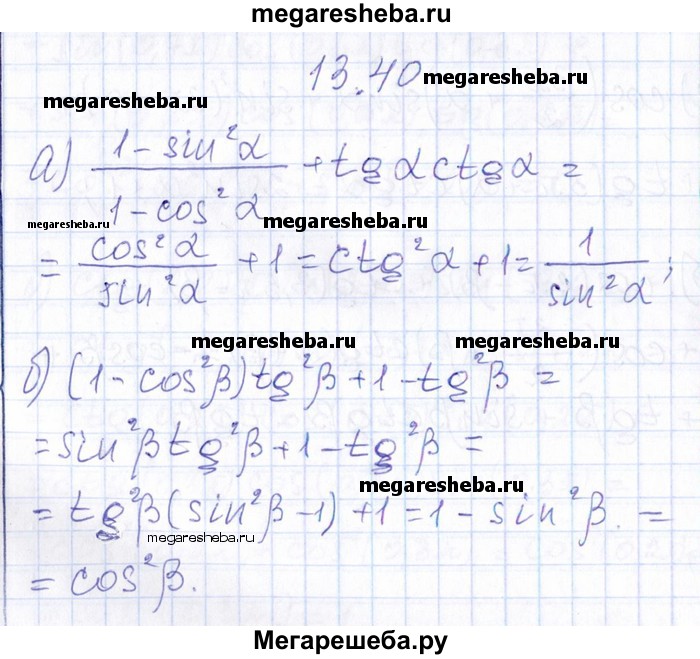 megaresheba.ru
13.40 megaresheba.ru
megaresheba.ru
а) (1 - sin²α)/(1 - cos²α) + tgαctgα =
megaresheba.ru megaresheba.ru
= cos²α/sin²α + 1 = ctg²α + 1 = 1/sin²α;
megaresheba.ru megaresheba.ru
б) (1 - cos²β)tg²β + 1 - tg²β =
= sin²βtg²β + 1 - tg²β =
megaresheba.ru
= tg²β(sin²β - 1) + 1 = 1 - sin²β. =
megaresheba.ru
= cos²β.
Мегарешеба.ру